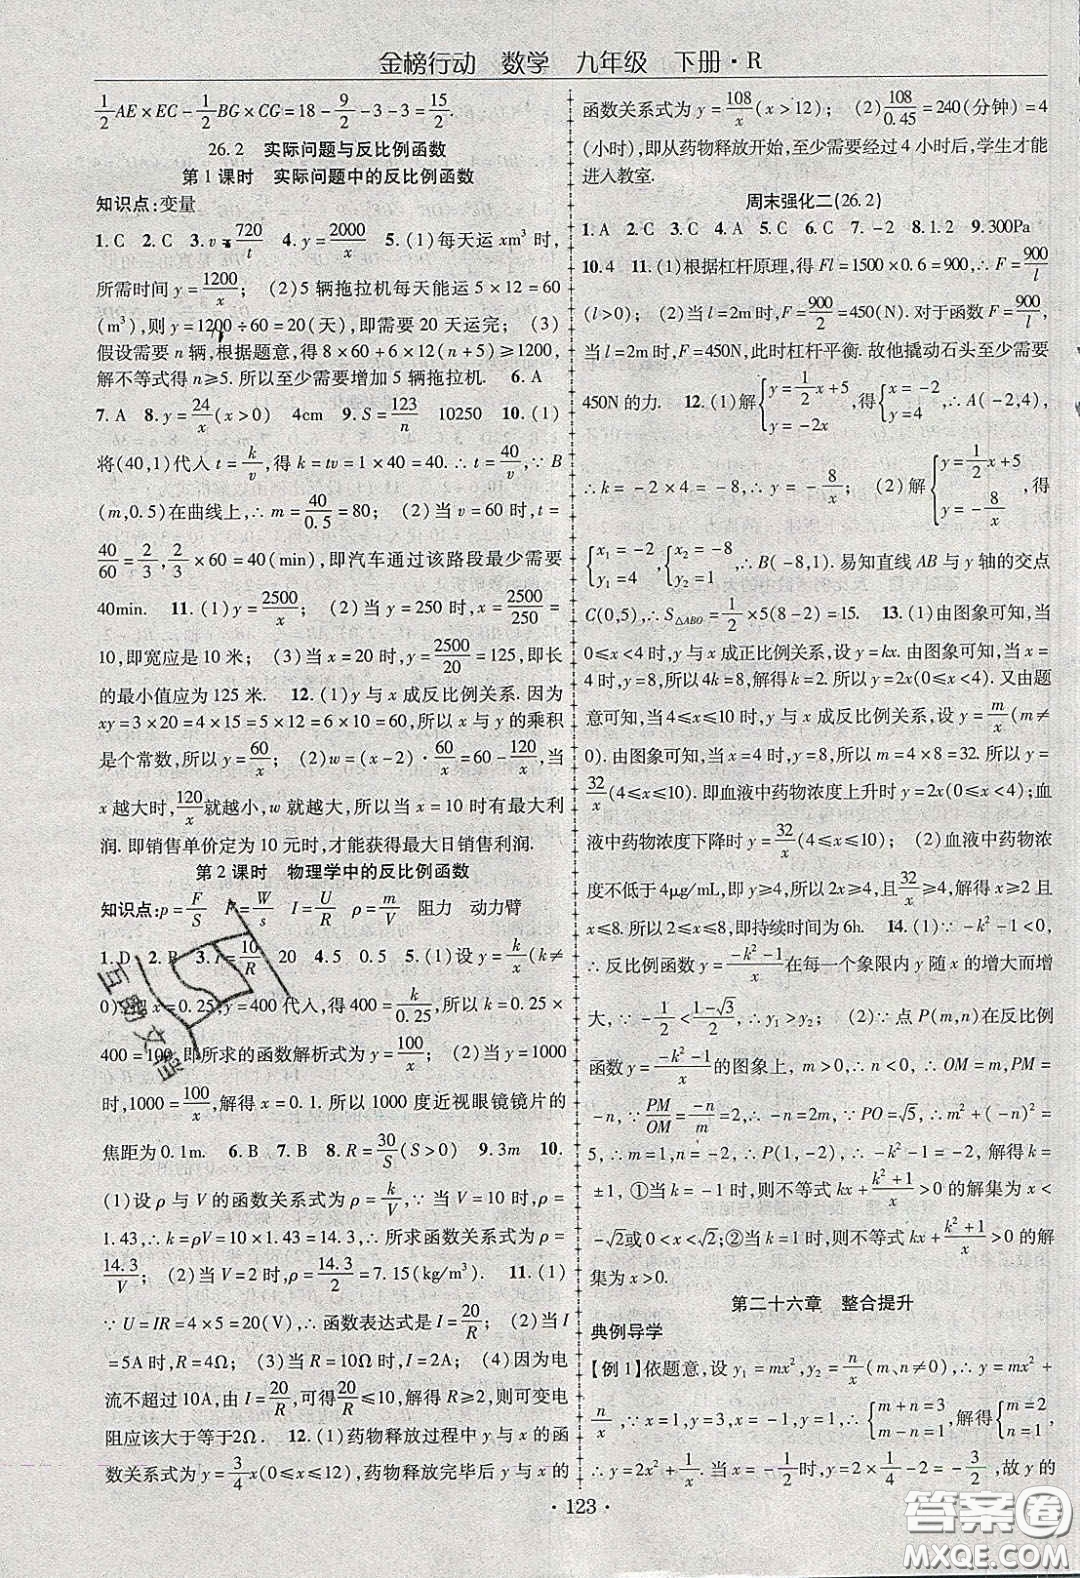 金榜行动　数学　九年级　下册·R
1/2 AE×EC－1/2 BG×CG＝18－9/2－3－3＝15/2.
26.2　实际问题与反比例函数
第1课时　实际问题中的反比例函数
知识点:变量
1.C　2.C　3.v＝720/t　4.y＝2000/x　5.(1)每天运xm³时,
所需时间y＝1200/x;　(2)5辆拖拉机每天能运5×12＝60
(m³),则y＝1200÷60＝20(天),即需要20天运完;　(3)
假设需要n辆,根据题意,得8×60＋6×12(n＋5)≥1200,
解不等式得n≥5.所以至少需要增加5辆拖拉机.　6.A
7.A　8.y＝24/x(x>0)　4cm　9.S＝123/n　10250　10.(1)
将(40,1)代入t＝k/v,得k＝tv＝1×40＝40.∴t＝40/v,∵B
(m,0.5)在曲线上,∴m＝40/0.5＝80;　(2)当v＝60时,t＝
40/60＝2/3,2/3×60＝40(min),即汽车通过该路段最少需要
40min.　11.(1)y＝2500/x;　(2)当y＝250时,x＝2500/250＝
10,即宽应是10米;　(3)当x＝20时,y＝2500/20＝125,即长
的最小值应为125米.　12.(1)y与x成反比例关系.因为
xy＝3×20＝4×15＝5×12＝6×10＝60,所以x与y的乘积
是个常数,所以y＝60/x;　(2)w＝(x－2)·60/x＝60－120/x,当
x越大时,120/x就越小,w就越大,所以当x＝10时有最大利
润.即销售单价定为10元时,才能获得最大日销售利润.
第2课时　物理学中的反比例函数
知识点:p＝F/S　F＝W/s　I＝U/R　ρ＝m/V　阻力　动力臂
1.D　2.B　3.I＝10/R　20　4.5　0.5　5.(1)设y＝k/x(k≠
0),把x＝0.25,y＝400代入,得400＝k/0.25,所以k＝0.25×
400＝100,即所求的函数解析式为y＝100/x;　(2)当y＝1000
时,1000＝100/x,解得x＝0.1.所以1000度近视眼镜镜片的
焦距为0.1m.　6.B　7.B　8.R＝30/S(S>0)　9.3m　10.
(1)设ρ与V的函数关系式为ρ＝k/V,∵当V＝10时,ρ＝
1.43,∴k＝ρV＝10×1.43＝14.3,∴所求函数关系式为ρ＝
14.3/V;　(2)当V＝2时,ρ＝14.3/2＝7.15(kg/m³).　11.(1)
∵U＝IR＝4×5＝20(V),∴函数表达式是I＝20/R;　(2)当I
＝5A时,R＝4Ω;　(3)当R＝10Ω时,I＝2A;　(4)因为电
流不超过10A,由I＝20/R,可得20/R≤10,解得R≥2,则可变电
阻应该大于等于2Ω.　12.(1)药物释放过程中y与x的函
数关系式为y＝3/4 x(0≤x≤12),药物释放完毕后y与x的
函数关系式为y＝108/x(x>12);　(2)108/0.45＝240(分钟)＝4
(小时),即从药物释放开始,至少需要经过4小时后,学生才能
进入教室.
周末强化二(26.2)
1.A　2.C　3.C　4.A　5.C　6.C　7.－2　8.1.2　9.300Pa
10.4　11.(1)根据杠杆原理,得Fl＝1500×0.6＝900,∴F＝900/l
(l>0);　(2)当l＝2m时,F＝900/2＝450(N).对于函数F＝900/l,
当l＝2m时,F＝450N,此时杠杆平衡.故他撬动石头至少需要
450N的力.　12.(1)解{y＝1/2 x＋5, y＝－2x,得{x＝－2, y＝4,∴A(－2,4),
∴k＝－2×4＝－8,∴y＝－8/x;　(2)解{y＝1/2 x＋5, y＝－8/x,得
{x₁＝－2, y₁＝4 {x₂＝－8, y₂＝1,∴B(－8,1).易知直线AB与y轴的交点
C(0,5),∴S△ABO＝1/2×5(8－2)＝15.　13.(1)由图象可知,当
0≤x<4时,y与x成正比例关系,设y＝kx.由图象可知,当x＝
4时,y＝8,所以4k＝8,解得k＝2.所以y＝2x(0≤x<4).又由题
意可知,当4≤x≤10时,y与x成反比例关系,设y＝m/x(m≠
0).由图象可知,当x＝4时,y＝8,所以m＝4×8＝32.所以y＝
32/x(4≤x≤10).即血液中药物浓度上升时y＝2x(0≤x<4);血
液中药物浓度下降时y＝32/x(4≤x≤10);　(2)血液中药物浓
度不低于4μg/mL,即y≥4,所以2x≥4,且32/x≥4,解得x≥2且
x≤8.所以2≤x≤8,即持续时间为6h.　14.(1)∵－k²－1<0,
∴反比例函数y＝(－k²－1)/x在每一个象限内y随x的增大而增
大,∵－1/2<(1－√3)/2,∴y₁>y₂;　(2)∵点P(m,n)在反比例
函数y＝(－k²－1)/x的图象上,m>0,∴n<0,∴OM＝m,PM＝
－n,∵PM/OM＝－n/m＝2,∴－n＝2m,∵PO＝√5,∴m²＋(－n)²＝
5,∴m＝1,n＝－2,∴P(1,－2),∴－k²－1＝－2,解得k＝
±1,①当k＝－1时,则不等式kx＋(k²＋1)/x>0的解集为x<
－√2或0<x<√2;②当k＝1时,则不等式kx＋(k²＋1)/x>0的解
集为x>0.
第二十六章　整合提升
典例导学
【例1】依题意,设y₁＝mx²,y₂＝n/x(m、n≠0),∴y＝mx²＋
n/x,∵x＝1,y＝3,x＝－1,y＝1,∴{m＋n＝3, m－n＝1,解得{m＝2, n＝1,
∴y＝2x²＋1/x,当x＝－1/2时,y＝2×1/4－2＝－3/2,故y的
·123·
答案圈
MXQE.COM